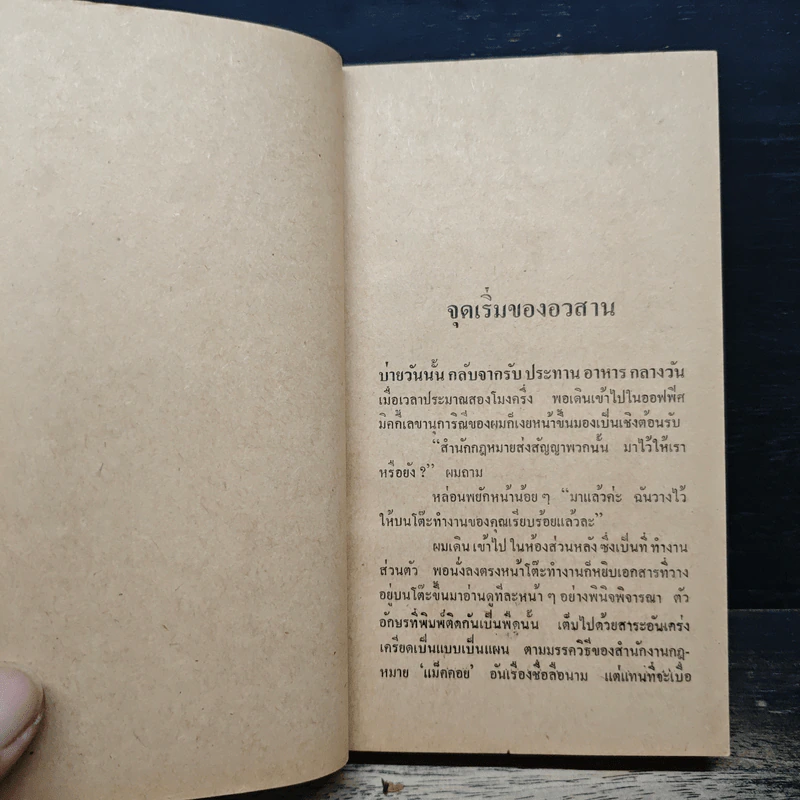 จุดเริ่มของอวสาน
บ่ายวันนั้น กลับจากรับ ประทาน อาหาร กลางวัน
เมื่อเวลาประมาณสองโมงครึ่ง พอเดินเข้าไปในออฟฟิศ
มิคกี้เลขานุการิณีของผมก็เงยหน้าขึ้นมองเป็นเชิงต้อนรับ
“สำนักกฎหมายส่งสัญญาพวกนั้น มาไว้ให้เรา
หรือยัง ?” ผมถาม
หล่อนพยักหน้าน้อย ๆ “มาแล้วค่ะ ฉันวางไว้
ให้บนโต๊ะทำงานของคุณเรียบร้อยแล้วละ”
ผมเดิน เข้าไป ในห้องส่วนหลัง ซึ่งเป็นที่ ทำงาน
ส่วนตัว พอนั่งลงตรงหน้าโต๊ะทำงานก็หยิบเอกสารที่วาง
อยู่บนโต๊ะขึ้นมาอ่านดูทีละหน้า ๆ อย่างพินิจพิจารณา ตัว
อักษรที่พิมพ์ติดกันเป็นพืดนั้น เต็มไปด้วยสาระอันเคร่ง
เครียดเป็นแบบเป็นแผน ตามมรรควิธีของสำนักงานกฎ-
หมาย ‘แม็คคอย’ อันเรื่องชื่อลือนาม แต่แทนที่จะเบื่อ